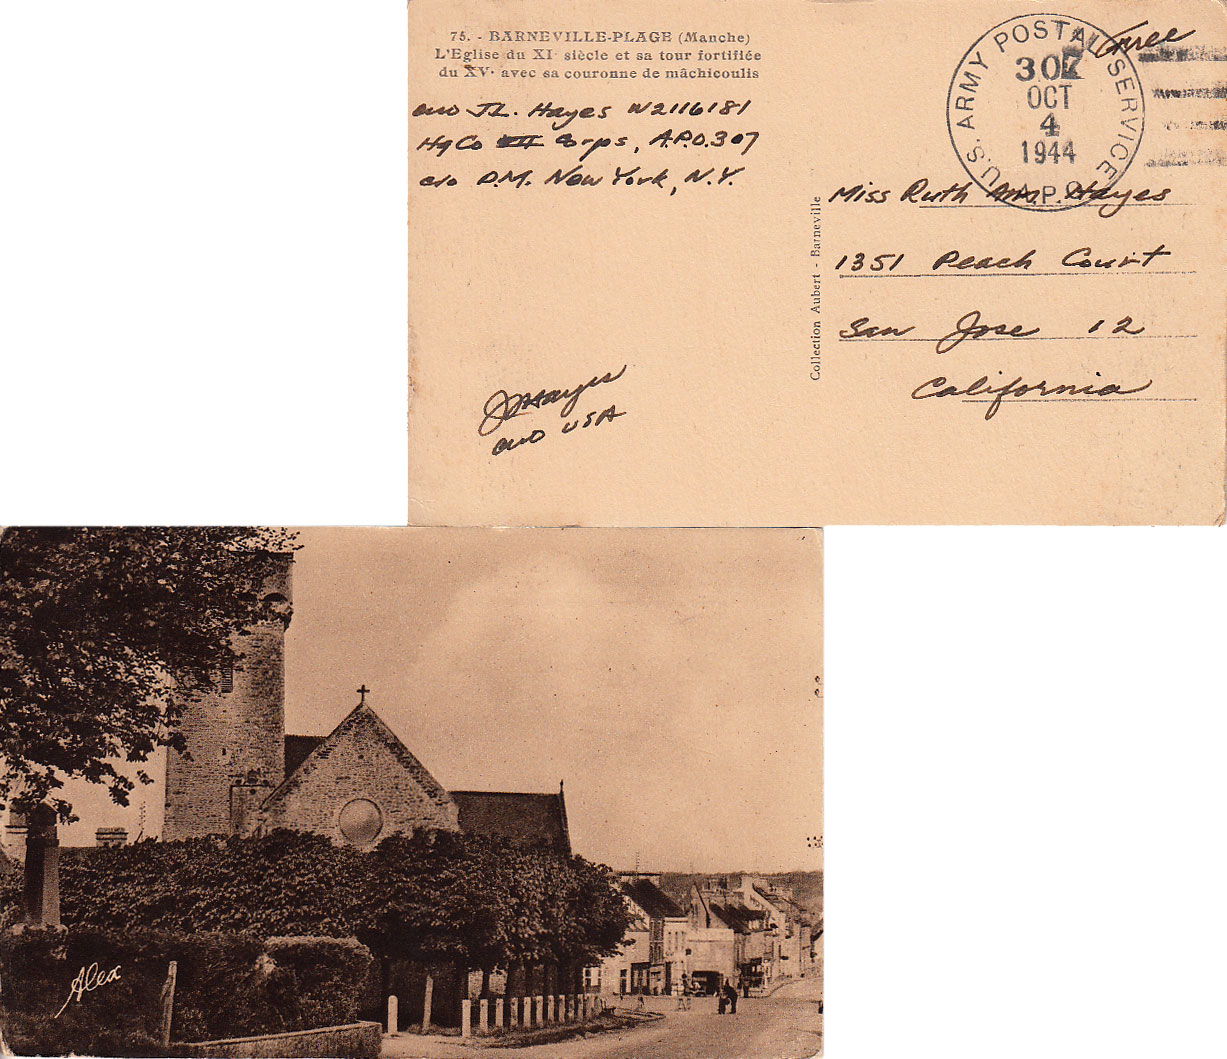 75. - BARNEVILLE-PLAGE (Manche)
L'Eglise du XIe siècle et sa tour fortifiée
du XVe avec sa couronne de mâchicoulis
CWO J.L. Hayes W2116181
Hq Co VII Corps, A.P.O. 307
c/o P.M. New York, N.Y.
Free
U.S. ARMY POSTAL SERVICE
307
OCT
4
1944
A.P.O.
Miss Ruth M. Hayes
1351 Peach Court
San Jose 12
California
Collection Aubert - Barneville
JL Hayes
CWO USA
Alex